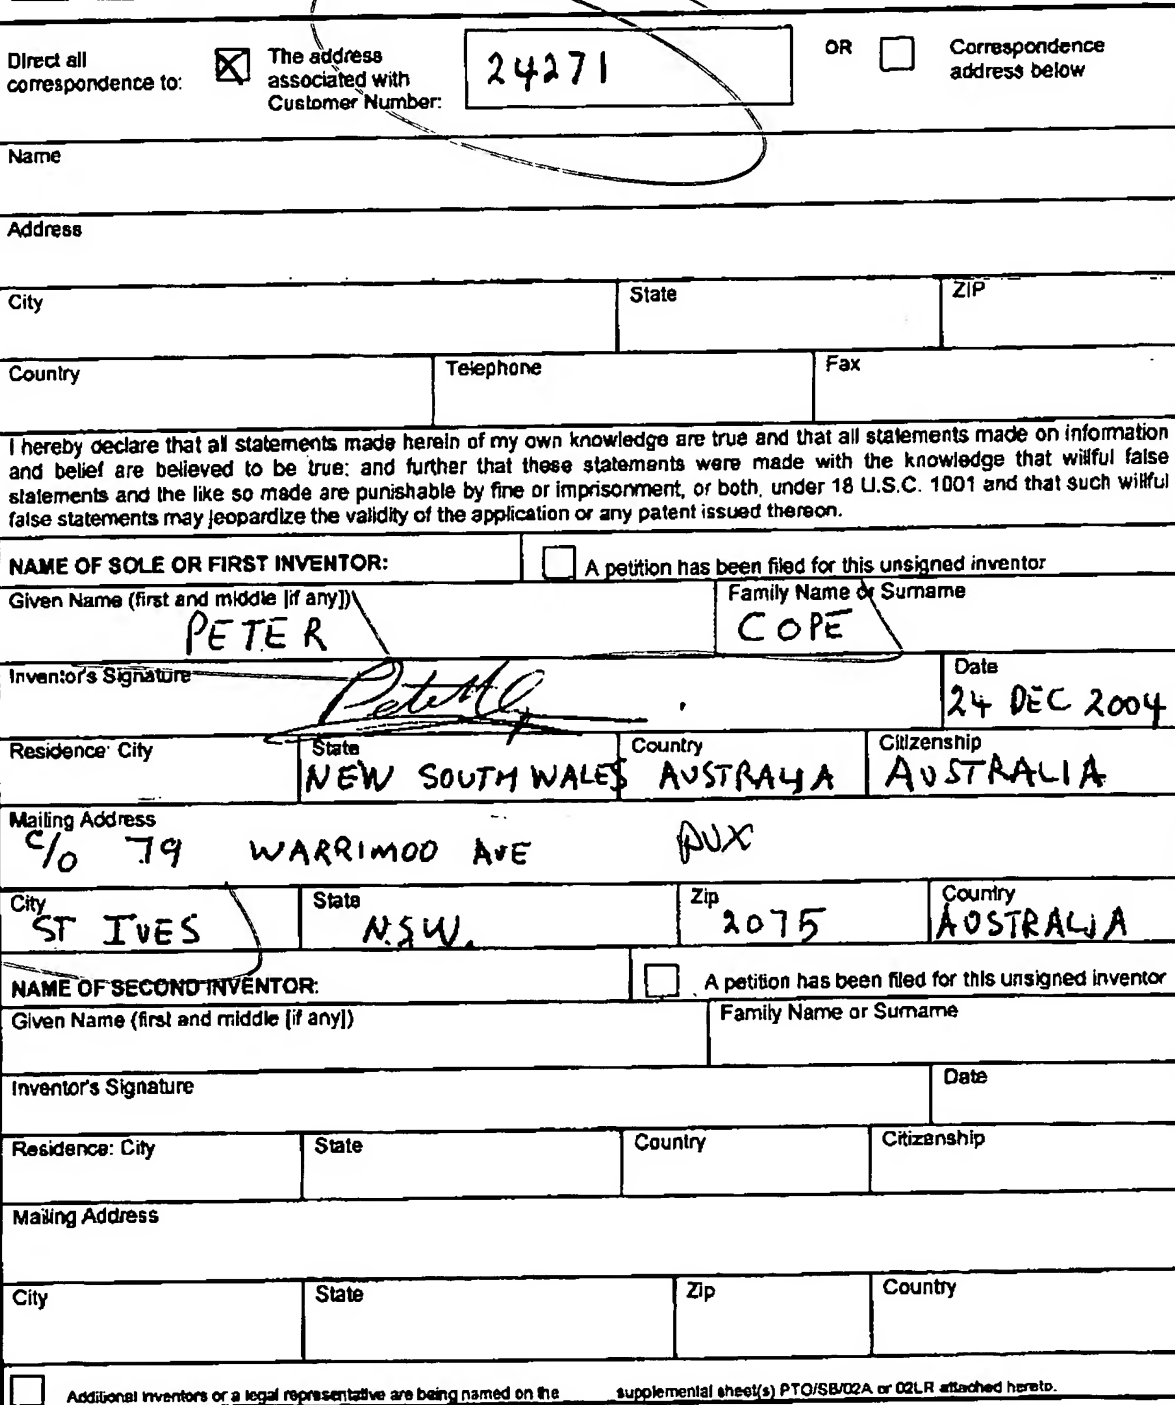 Direct all correspondence to: The address associated with Customer Number: 24271 OR Correspondence address below
Name
Address
City State ZIP
Country Telephone Fax
I hereby declare that all statements made herein of my own knowledge are true and that all statements made on information
and belief are believed to be true; and further that these statements were made with the knowledge that willful false
statements and the like so made are punishable by fine or imprisonment, or both, under 18 U.S.C. 1001 and that such willful
false statements may jeopardize the validity of the application or any patent issued thereon.
NAME OF SOLE OR FIRST INVENTOR: A petition has been filed for this unsigned inventor
Given Name (first and middle [if any]) Family Name or Surname
PETER COPE
Inventor's Signature Date
24 DEC 2004
Residence: City State Country Citizenship
NEW SOUTH WALES AUSTRALIA AUSTRALIA
Mailing Address
c/o 79 WARRIMOO AVE AUX
City State Zip Country
ST IVES N.S.W. 2075 AUSTRALIA
NAME OF SECOND INVENTOR: A petition has been filed for this unsigned inventor
Given Name (first and middle [if any]) Family Name or Surname
Inventor's Signature Date
Residence: City State Country Citizenship
Mailing Address
City State Zip Country
Additional inventors or a legal representative are being named on the supplemental sheet(s) PTO/SB/02A or 02LR attached hereto.